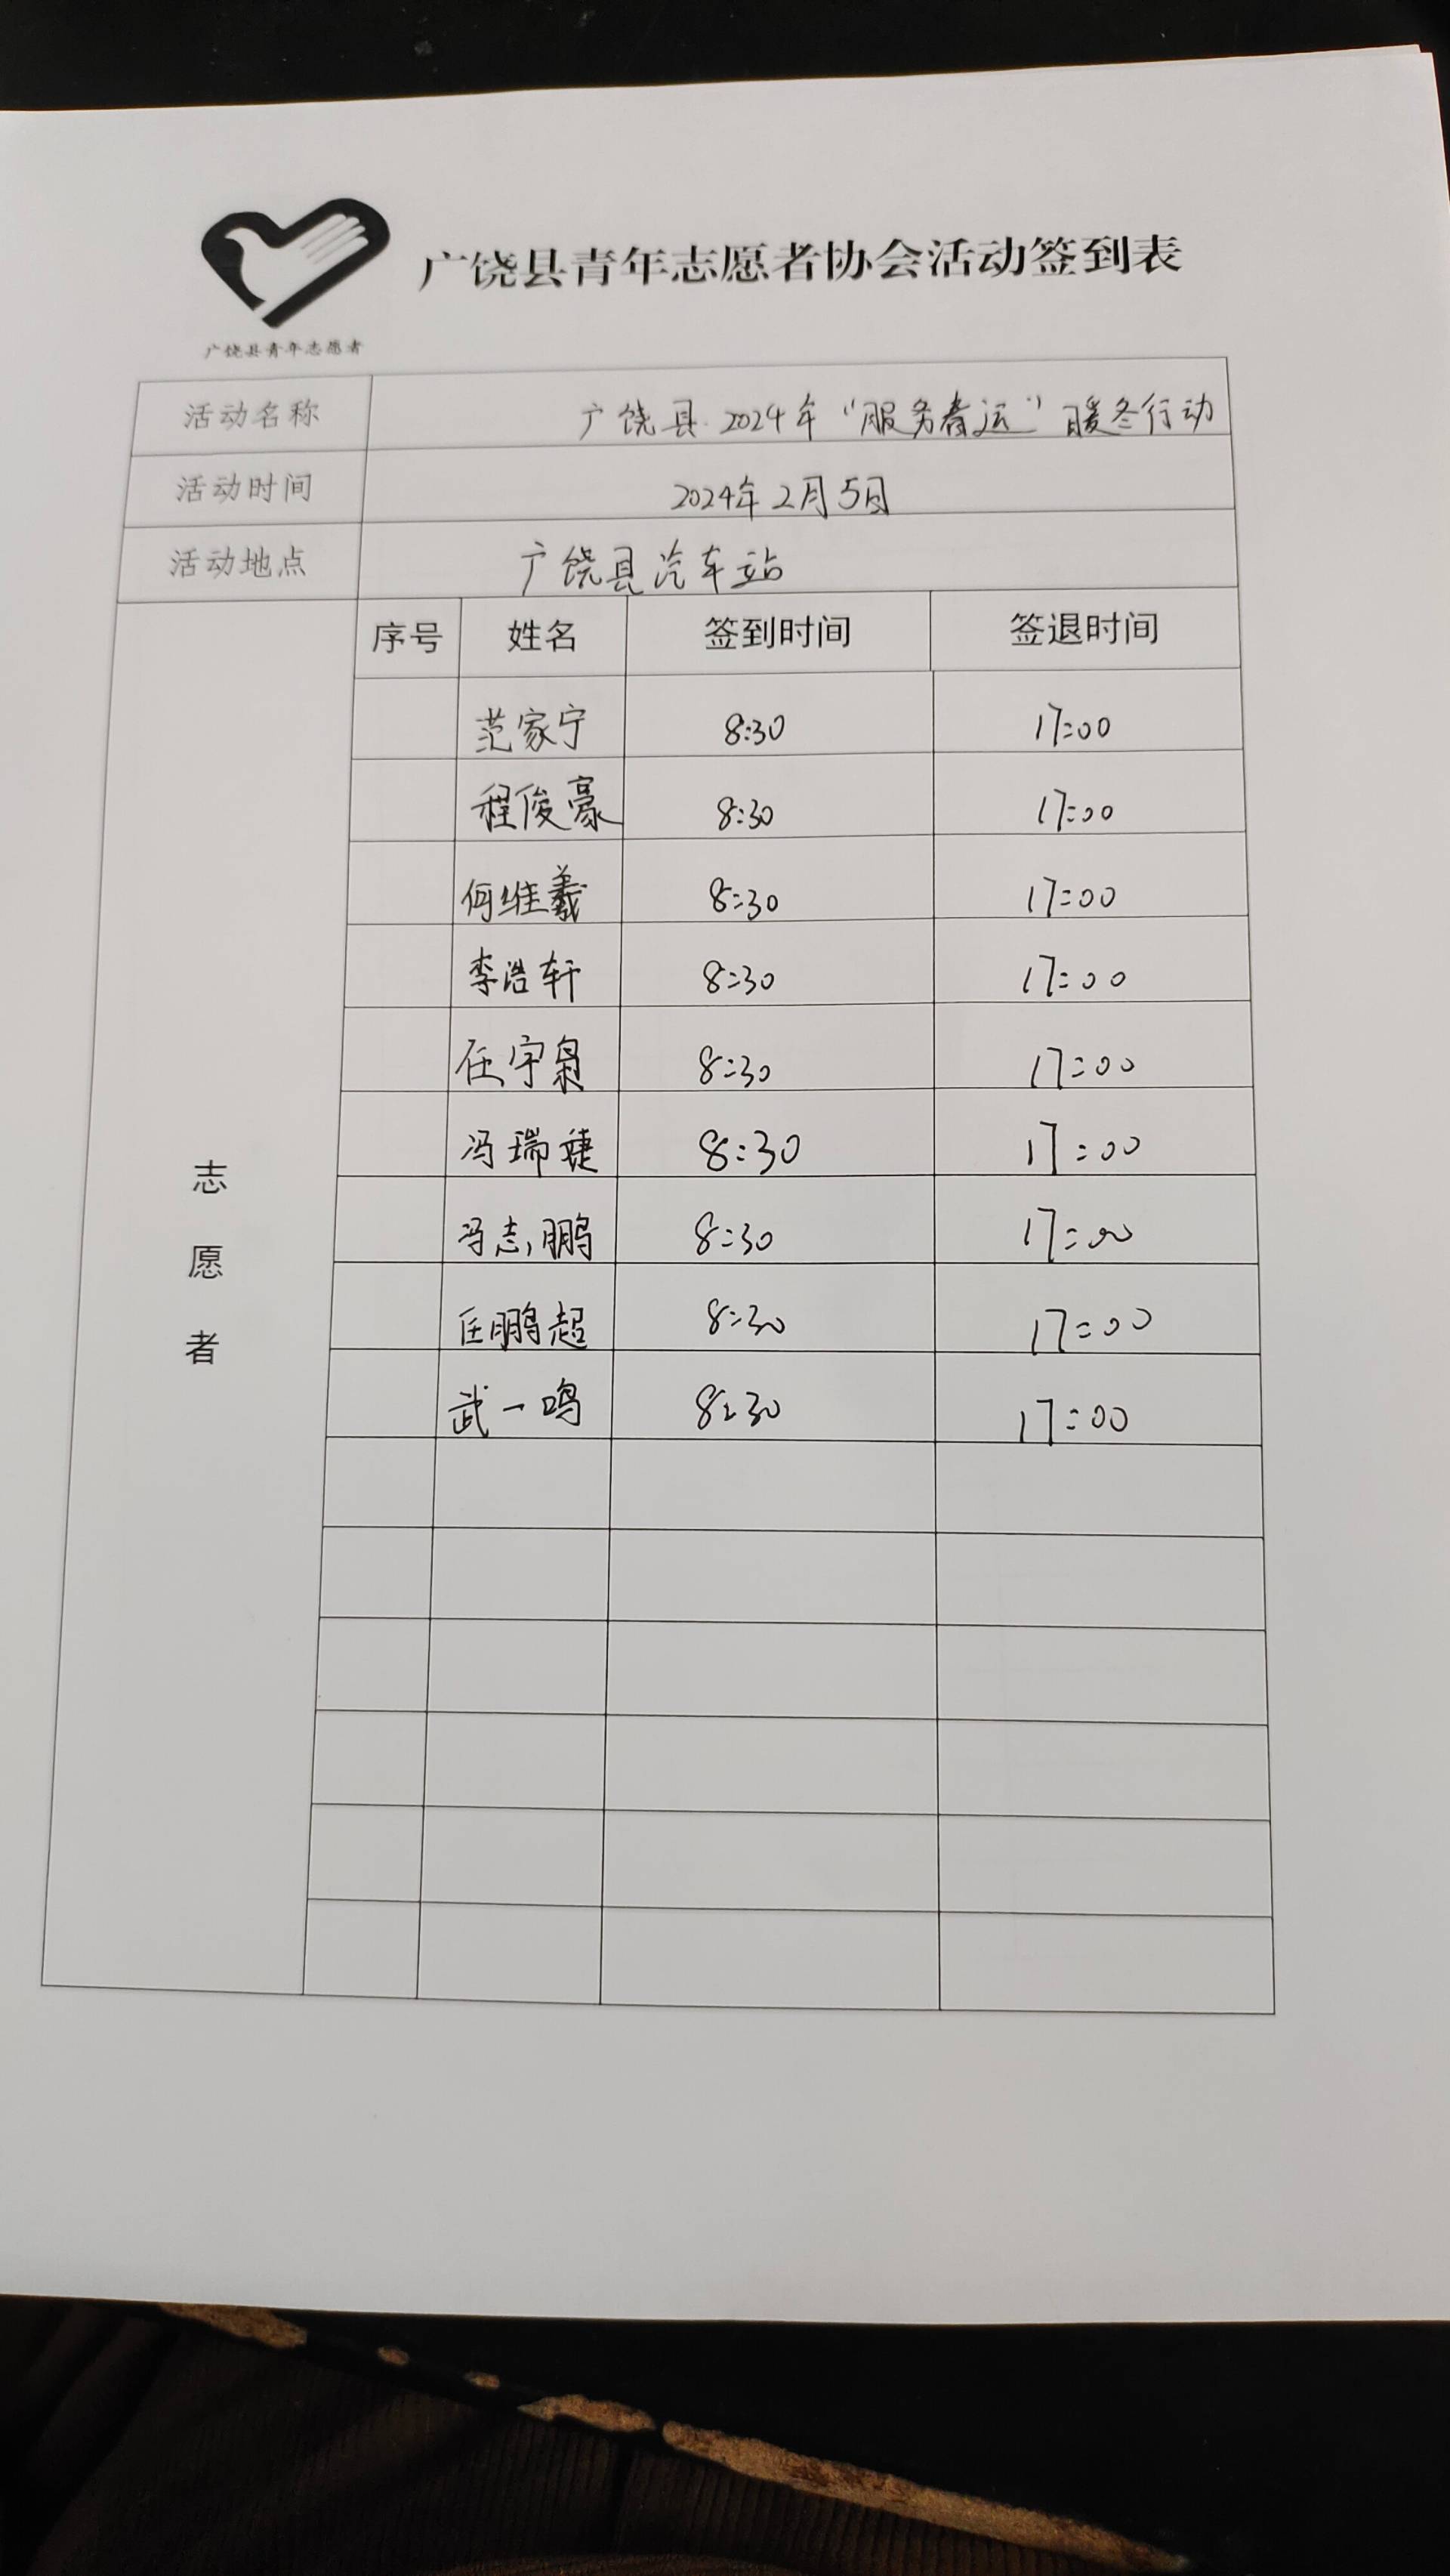 广饶县青年志愿者协会活动签到表
广饶县青年志愿者
活动名称 广饶县2024年“服务春运”暖冬行动
活动时间 2024年2月5日
活动地点 广饶县汽车站
志愿者
序号 姓名 签到时间 签退时间
范家宁 8:30 17:00
程俊豪 8:30 17:00
何维羲 8:30 17:00
李浩轩 8:30 17:00
任宇枭 8:30 17:00
冯瑞婕 8:30 17:00
冯志鹏 8:30 17:00
任鹏超 8:30 17:00
武一鸣 8:30 17:00